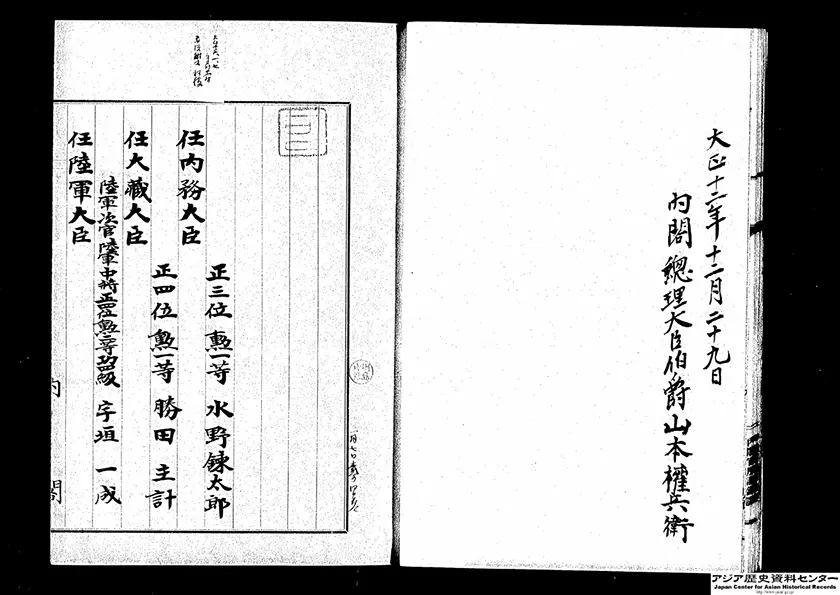 大正十二年十二月二十九日
内閣總理大臣伯爵山本權兵衛
正三位勲一等水野錬太郎
任内務大臣
正四位勲一等勝田主計
任大藏大臣
陸軍次官陸軍中將正四位勲二等功四級宇垣一成
任陸軍大臣
内閣
アジア歴史資料センター
Japan Center for Asian Historical Records
http://www.jacar.go.jp/